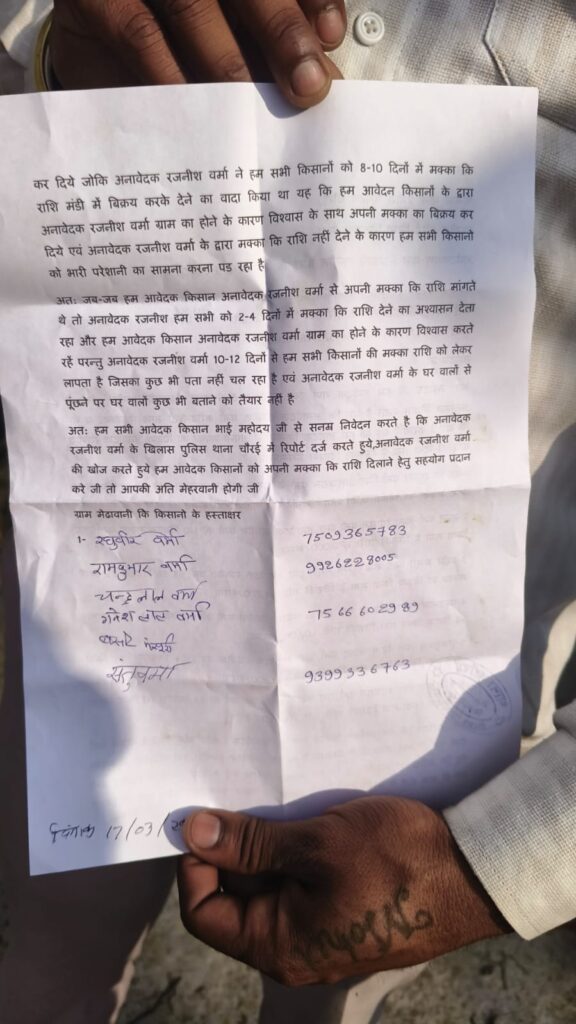 कर दिये जोकि अनावेदक रजनीश वर्मा ने हम सभी किसानों को 8-10 दिनों में मक्का कि
राशि मंडी में बिक्रय करके देने का वादा किया था यह कि हम आवेदन किसानों के द्वारा
अनावेदक रजनीश वर्मा ग्राम का होने के कारण विश्वास के साथ अपनी मक्का का बिक्रय कर
दिये एवं अनावेदक रजनीश वर्मा के द्वारा मक्का कि राशि नहीं देने के कारण हम सभी किसानो
को भारी परेशानी का सामना करना पड रहा है
अतः जब-जब हम आवेदक किसान अनावेदक रजनीश वर्मा से अपनी मक्का कि राशि मांगते
थे तो अनावेदक रजनीश हम सभी को 2-4 दिनों में मक्का कि राशि देने का अश्वासन देता
रहा और हम आवेदक किसान अनावेदक रजनीश वर्मा ग्राम का होने के कारण विश्वास करते
रहें परन्तु अनावेदक रजनीश वर्मा 10-12 दिनों से हम सभी किसानों की मक्का राशि को लेकर
लापता है जिसका कुछ भी पता नहीं चल रहा है एवं अनावेदक रजनीश वर्मा के घर वालों से
पूंछने पर घर वालों कुछ भी बताने को तैयार नहीं है
अतः हम सभी आवेदक किसान भाई महोदय जी से सनम्र निवेदन करते है कि अनावेदक
रजनीश वर्मा के खिलास पुलिस थाना चौरई में रिपोर्ट दर्ज करते हुये,अनावेदक रजनीश वर्मा
की खोज करते हुये हम आवेदक किसानों को अपनी मक्का कि राशि दिलाने हेतु सहयोग प्रदान
करे जी तो आपकी अति मेहरवानी होगी जी
ग्राम मेढावानी कि किसानो के हस्ताक्षर
1- रघुवीर वर्मा 7509365783
रामकुमार वर्मा 9926228005
चन्द्र लाल वर्मा
गनेश लाल वर्मा 7566602989
संतु वर्मा 9399336763
दिनांक 17/03/